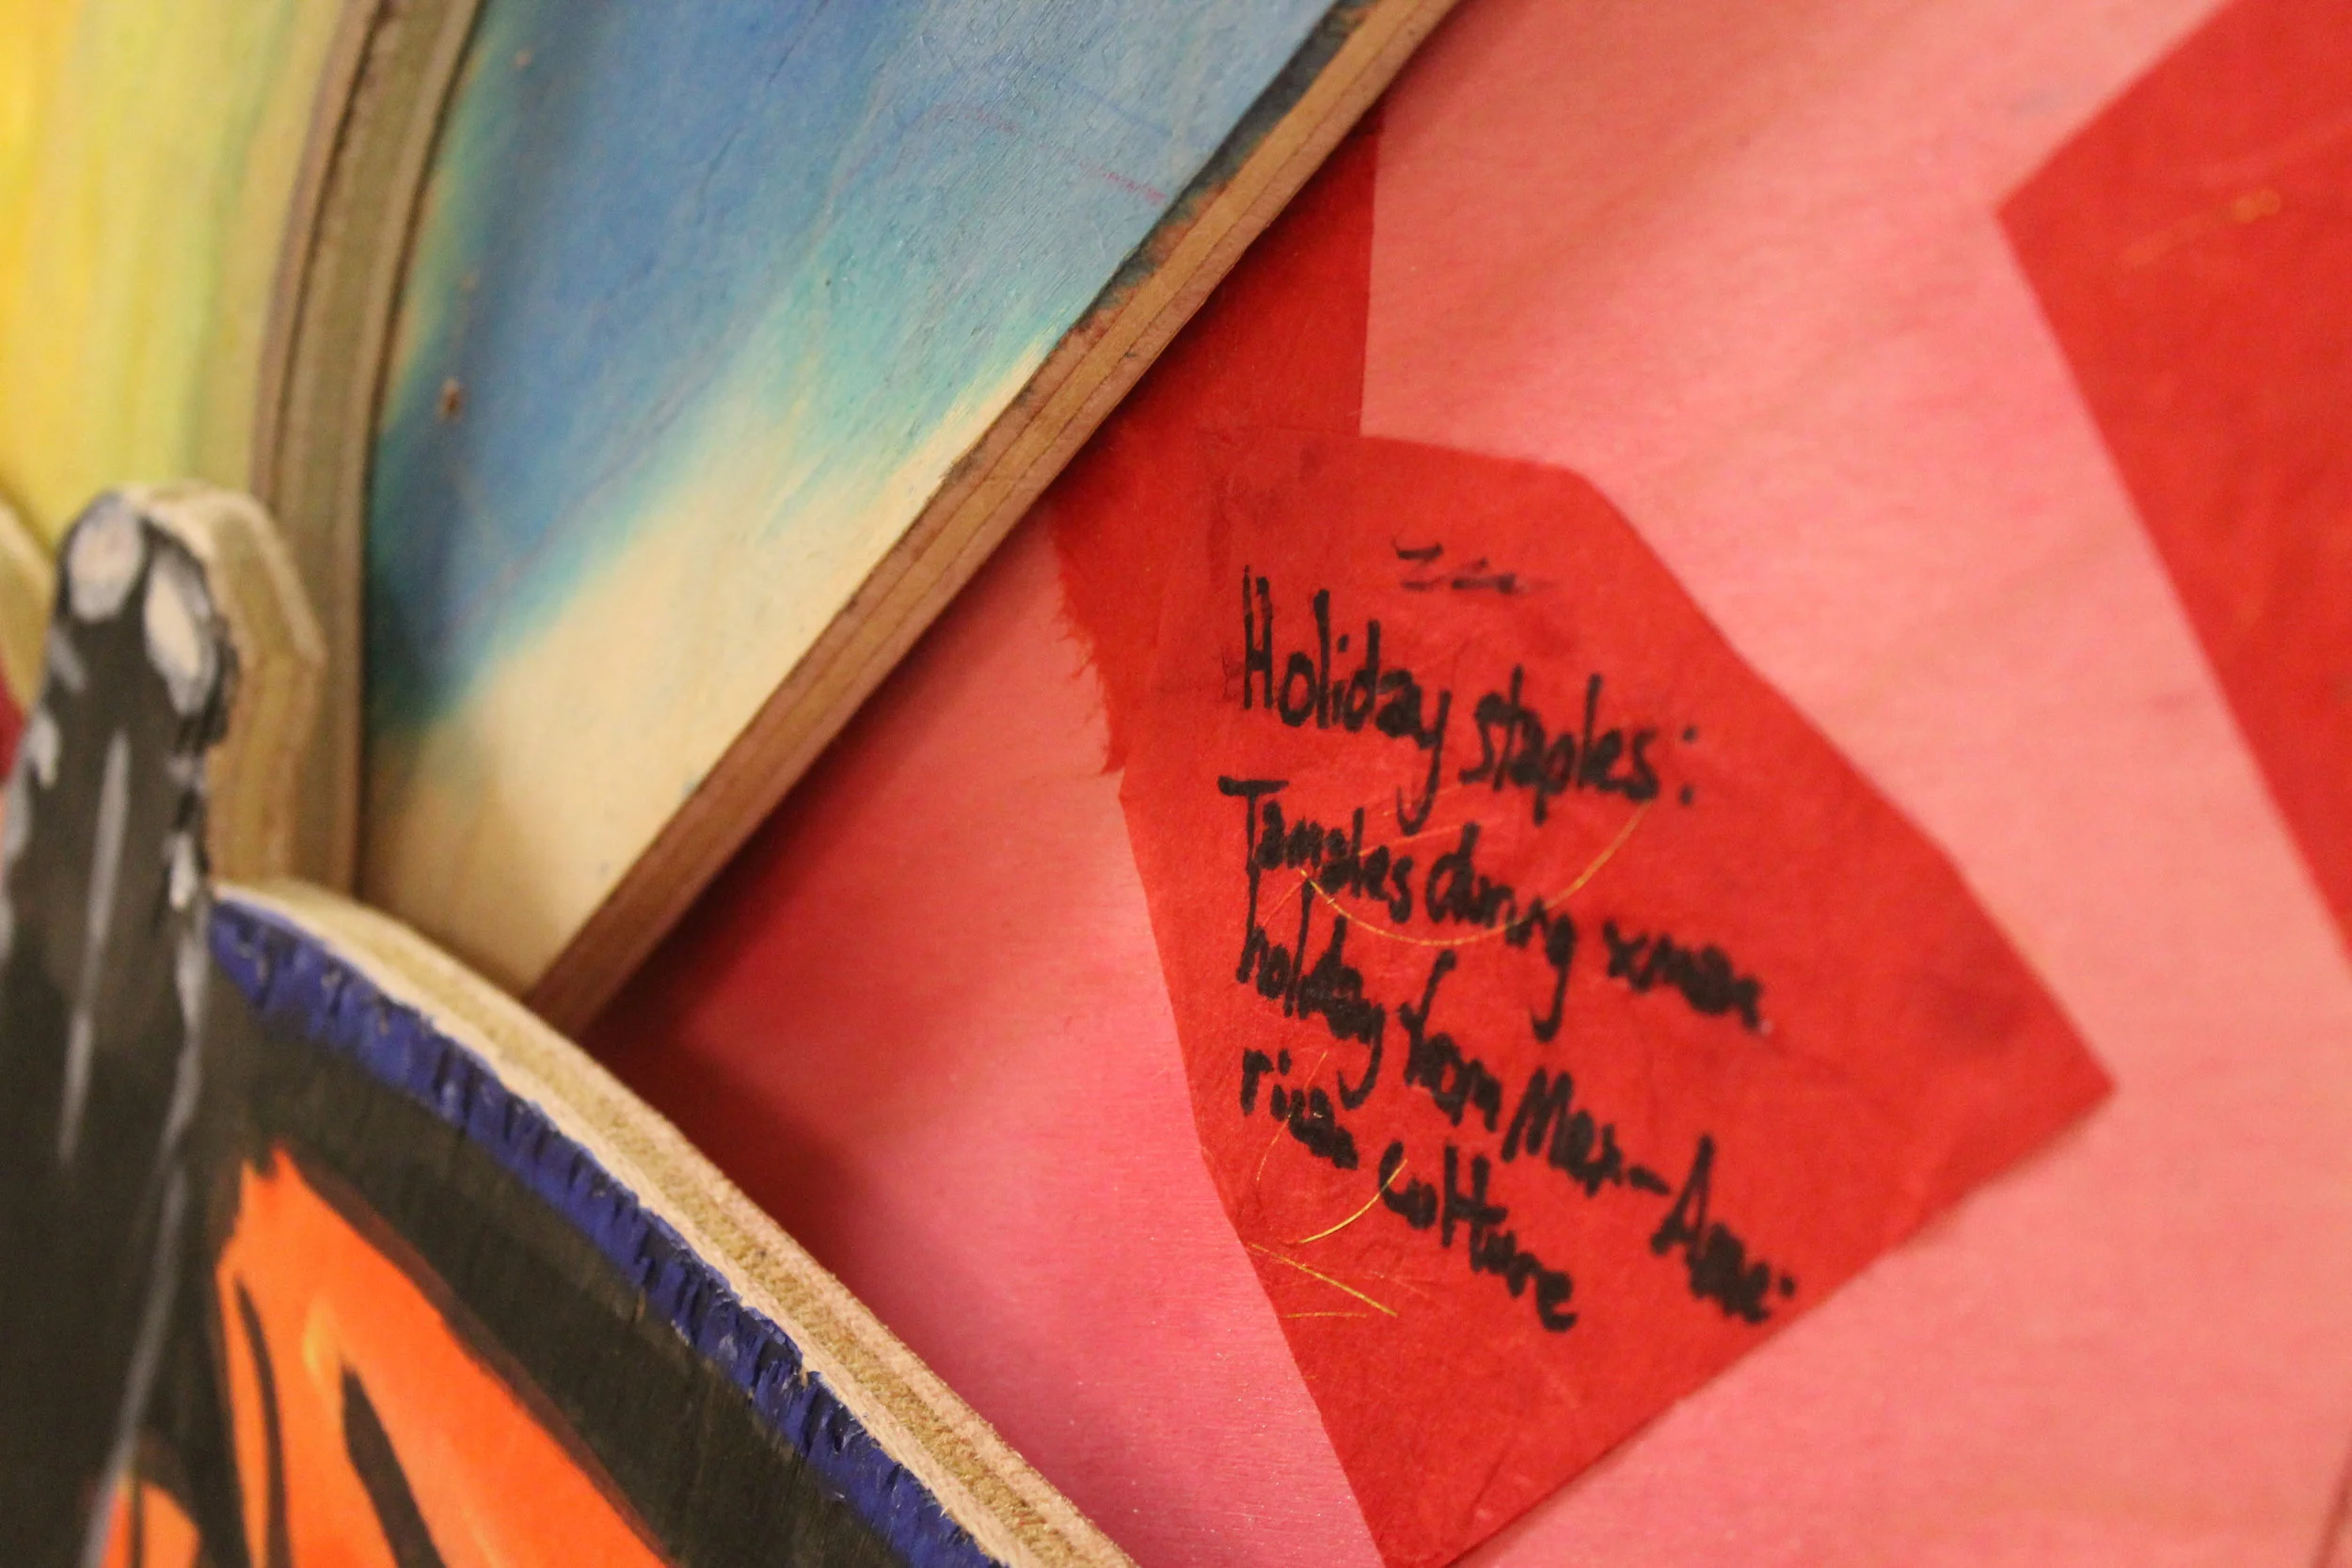 Holiday staples:
Tamales during xmas
holiday from Mex-Ame-
rican culture